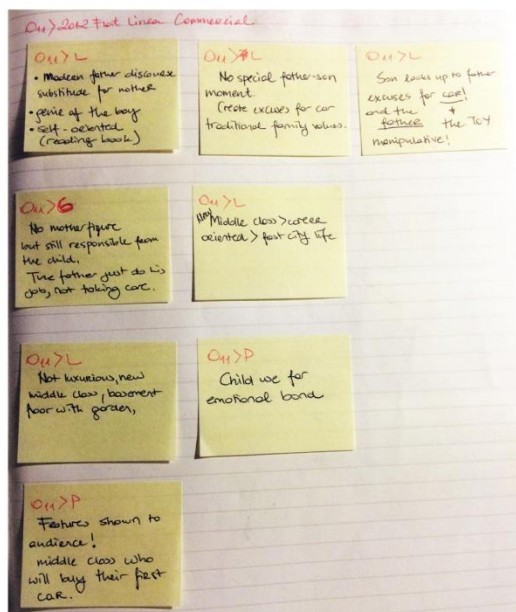 O11>2012 Fiat Linea Commercial
O11>L
• Modern father discourse
substitute for mother
• genie of the boy
• self-oriented
(reading book)
O11>L
No special father-son
moment.
Create excuses for car
traditional family values.
O11>L
Son looks up to father
excuses for car!
and the +
father the TOY
manipulative!
O11>G
No mother figure
but still responsible from
the child.
The father just do his
job, not taking care.
O11>L
New Middle class>career
oriented>fast city life
O11>L
Not luxurious, new
middle class, basement
floor with garden,
O11>P
Child use for
emotional bond
O11>P
Features shown to
audience!
middle class who
will buy their first
car.